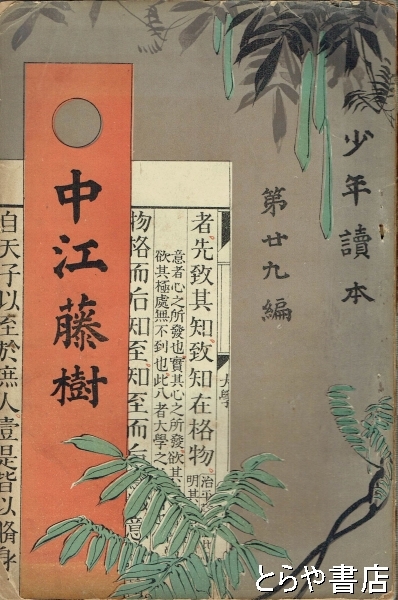 少年讀本
第廿九編
中江藤樹
者先致其知致知在格物
治平
明其
意者心之所發也實其心之所發欲其
欲其極處無不到也此八者大學之
物格而后知至知至而后意
自天子以至於庶人壹是皆以脩身
大學
とらや書店